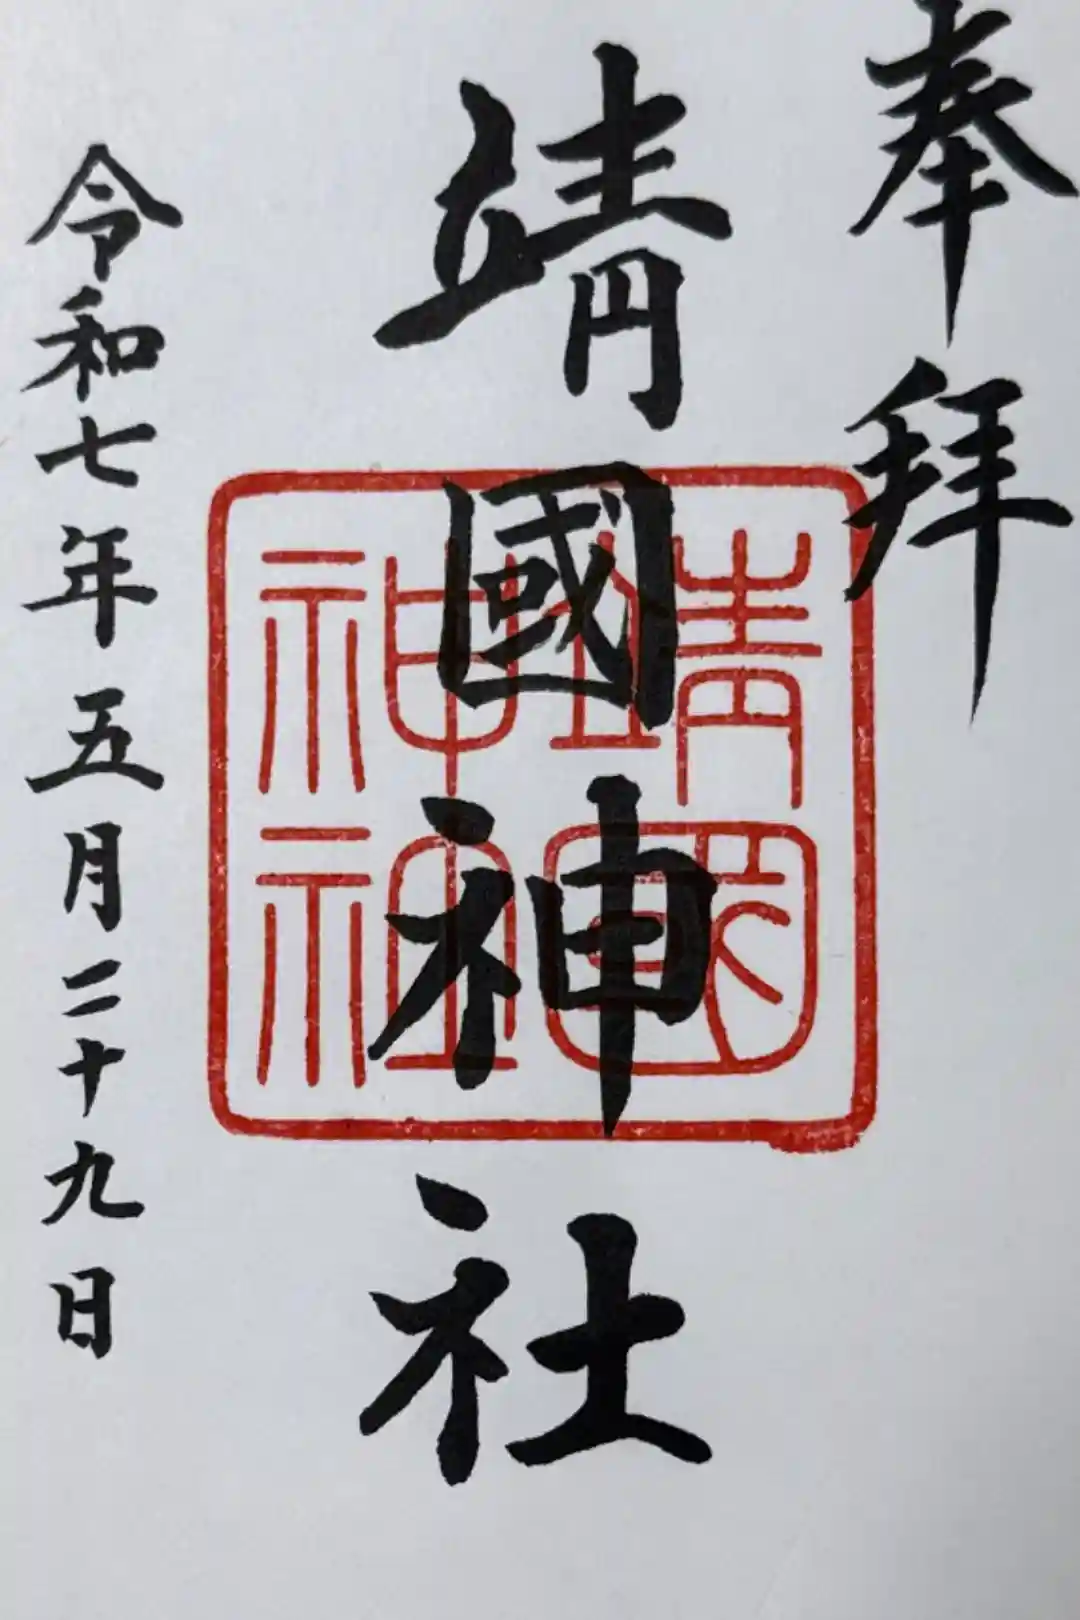 奉拜
靖國神社
靖国神社
令和七年五月二十九日